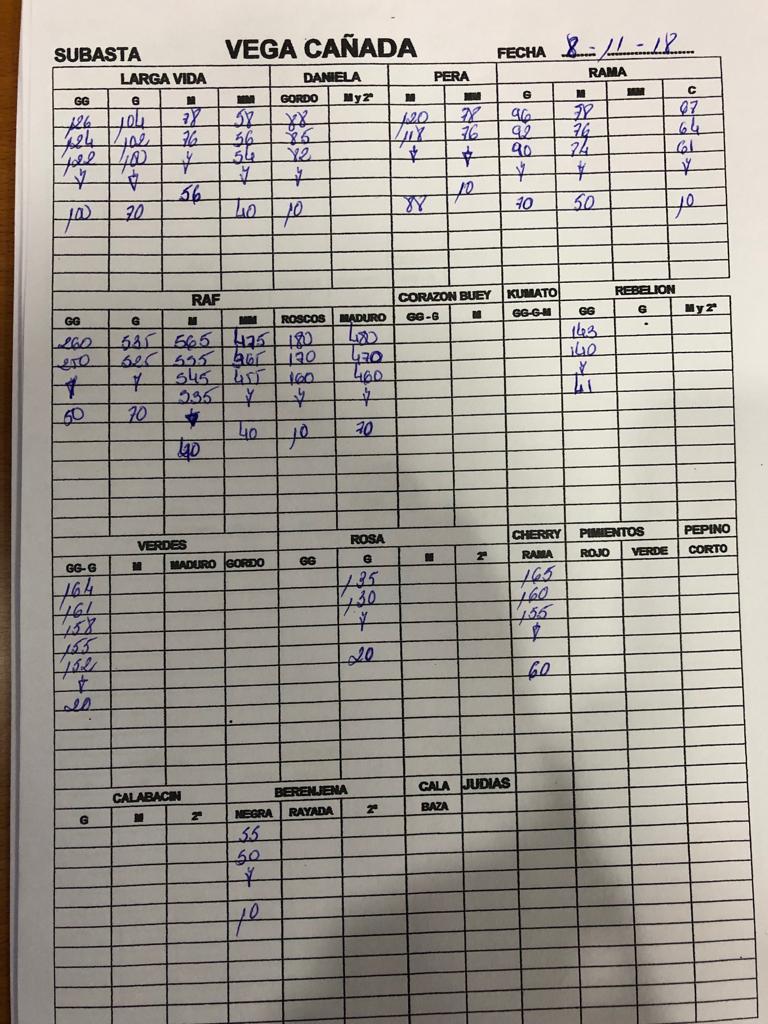 SUBASTA VEGA CAÑADA FECHA 8-11-18
LARGA VIDA DANIELA PERA RAMA
GG G M MM GORDO M y 2ª M MM G M MM C
126 104 78 58 88 120 78 96 78 67
124 102 76 56 85 118 76 92 76 64
122 100 54 82 90 74 61
56 10
100 70 40 10 88 70 50 10
RAF CORAZON BUEY KUMATO REBELION
GG G M MM ROSCOS MADURO GG - G M GG-G-M GG G M y 2ª
260 535 565 475 180 480 143
250 525 555 465 170 470 140
545 455 160 460
535 41
50 70 40 10 70
VERDES ROSA CHERRY PIMIENTOS PEPINO
GG- G M MADURO GORDO GG G M 2ª RAMA ROJO VERDE CORTO
164 135 165
161 130 160
158 155
155
152 20 60
20
CALABACIN BERENJENA CALA JUDIAS
G M 2ª NEGRA RAYADA 2ª BAZA
55
50
10